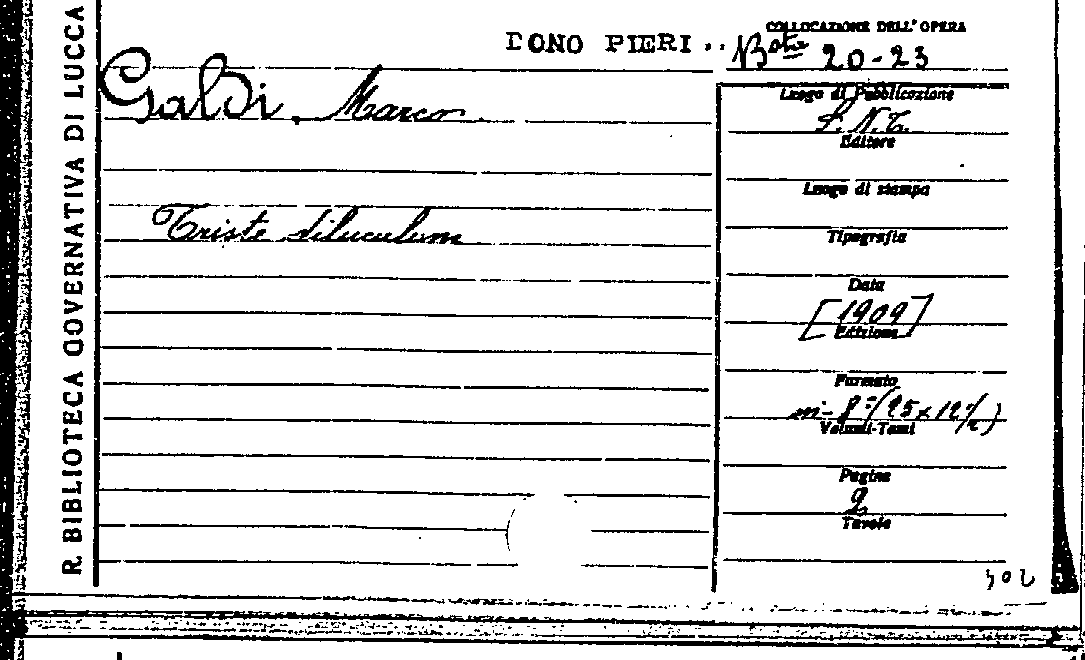 R. BIBLIOTECA GOVERNATIVA DI LUCCA
COLLOCAZIONE DELL'OPERA
DONO PIERI.. Bta 20-23
Galdi, Marco
Luogo di Pubblicazione
S. N. T.
Editore
Luogo di stampa
Triste diluculum
Tipografia
Data
[1909]
Edizione
Formato
in-8° (25 x 12½)
Volumi-Tomi
Pagine
2
Tavole